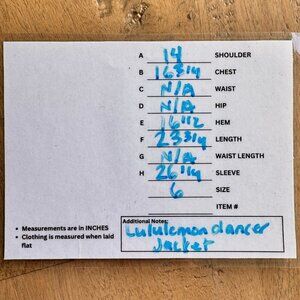 A 14 SHOULDER
B 16 3/4 CHEST
C N/A WAIST
D N/A HIP
E 16 1/2 HEM
F 23 3/4 LENGTH
G N/A WAIST LENGTH
H 26 1/4 SLEEVE
6 SIZE
ITEM #
• Measurements are in INCHES
• Clothing is measured when laid
flat
Additional Notes:
Lululemon dancer
Jacket